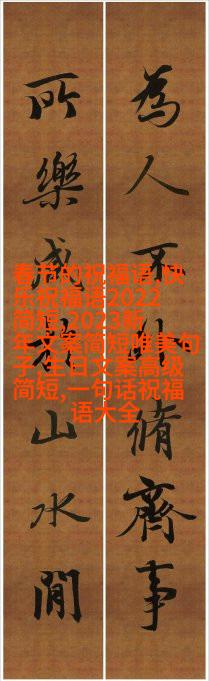 為人不脩齊事
所樂咸山水間
春节的祝福语,快
乐祝福语2022
简短,2023新
年文案简短唯美句
子,生日文案高级
简短,一句话祝福
语大全